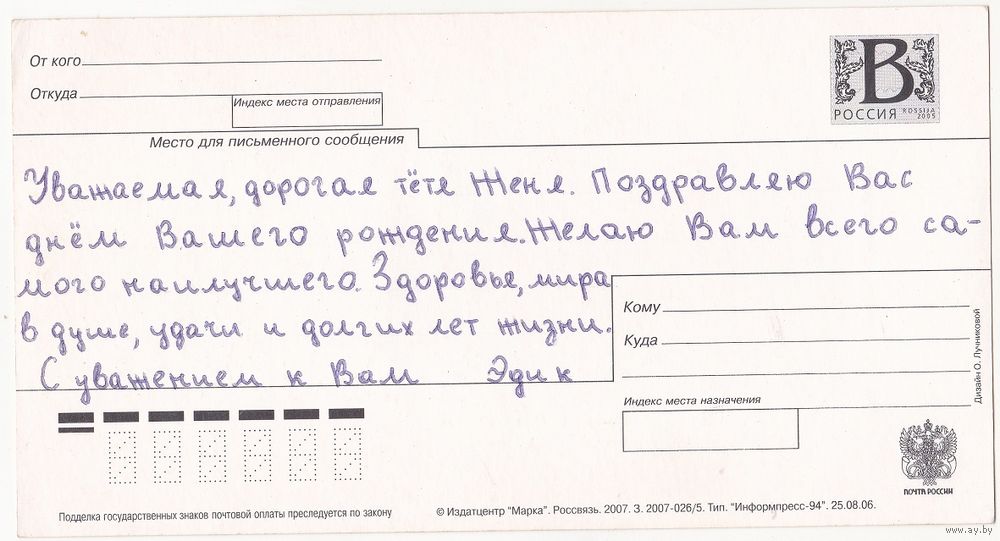 От кого
Откуда
Индекс места отправления
В
РОССИЯ ROSSIJA 2005
Место для письменного сообщения
Уважаемая, дорогая тётя Женя. Поздравляю Вас
днём Вашего рождения. Желаю Вам всего са-
мого наилучшего. Здоровье, мира
в душе, удачи и долгих лет жизни.
С уважением к Вам Эдик
Кому
Куда
Индекс места назначения
Дизайн О. Лучниковой
ПОЧТА РОССИИ
Подделка государственных знаков почтовой оплаты преследуется по закону
© Издатцентр "Марка". Россвязь. 2007. З. 2007-026/5. Тип. "Информпресс-94". 25.08.06.
www.ay.by